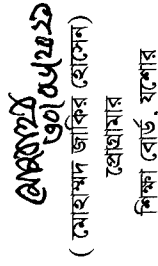 ৩০/০৬/২০২১
( মোহাম্মদ জাকির হোসেন)
প্রোগ্রামার
শিক্ষা বোর্ড, যশোর